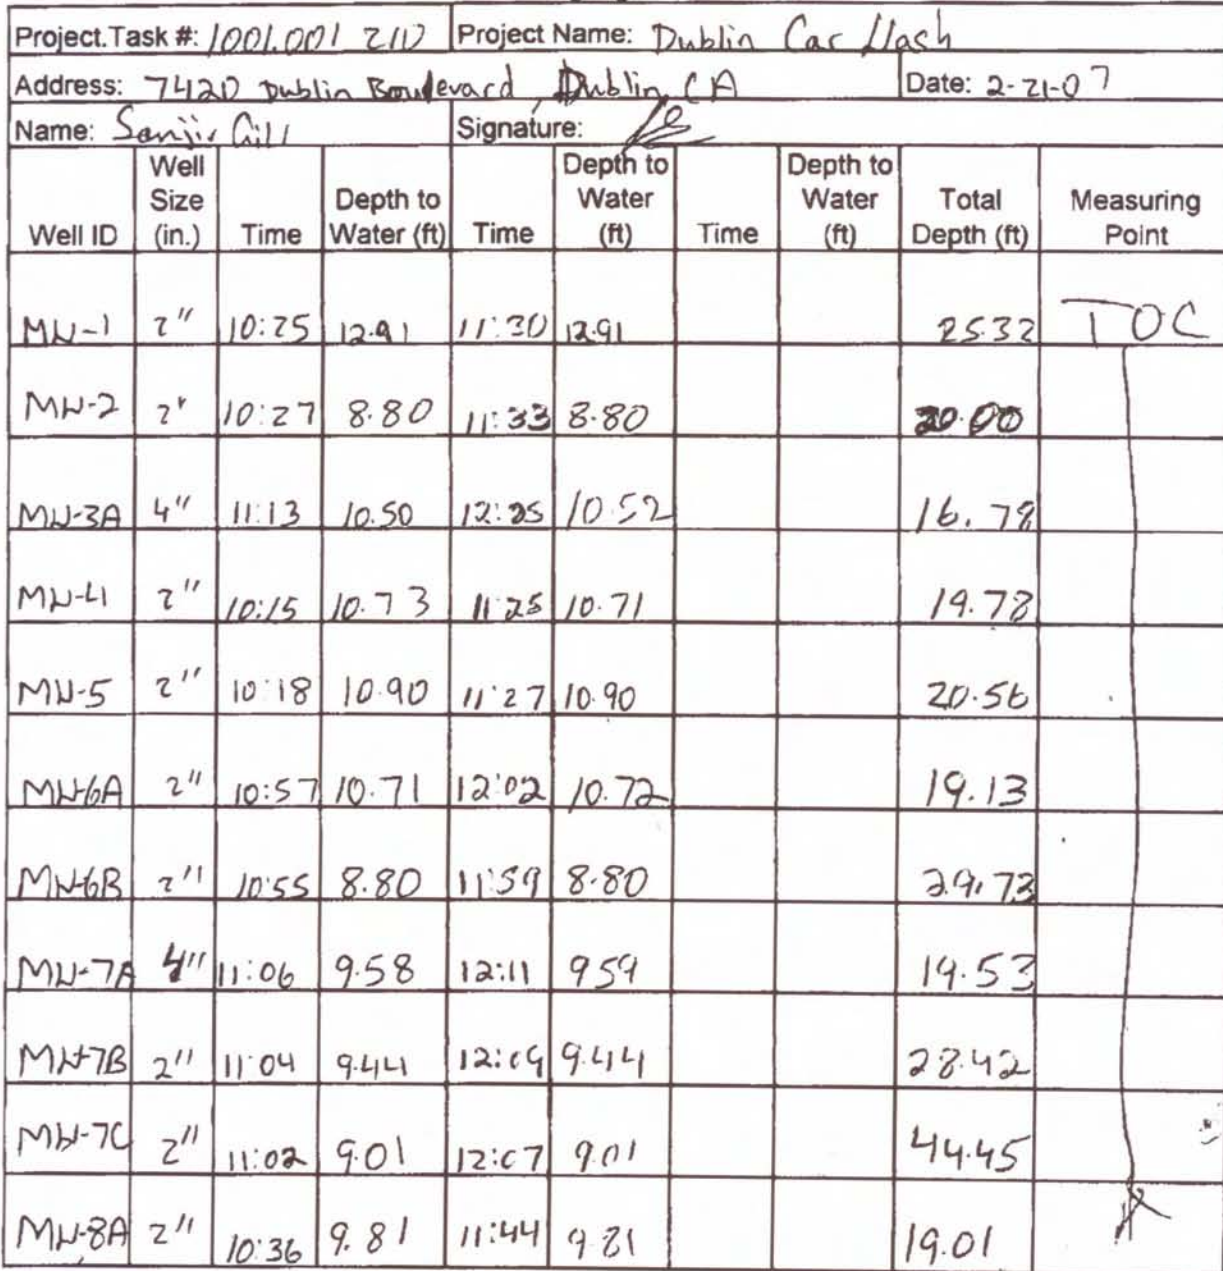 Project.Task #: 1001.001 210 Project Name: Dublin Car Wash
Address: 7420 Dublin Boulevard, Dublin, CA Date: 2-21-07
Name: Sanjiv Gill Signature:
Well ID Well Size (in.) Time Depth to Water (ft) Time Depth to Water (ft) Time Depth to Water (ft) Total Depth (ft) Measuring Point
MW-1 2" 10:25 12.91 11:30 12.91 25.32 TOC
MW-2 2" 10:27 8.80 11:33 8.80 20.00
MW-3A 4" 11:13 10.50 12:25 10.52 16.78
MW-4 2" 10:15 10.73 11:25 10.71 19.78
MW-5 2" 10:18 10.90 11:27 10.90 20.56
MW-6A 2" 10:57 10.71 12:02 10.72 19.13
MW-6B 2" 10:55 8.80 11:59 8.80 29.73
MW-7A 4" 11:06 9.58 12:11 9.59 19.53
MW-7B 2" 11:04 9.44 12:09 9.44 28.42
MW-7C 2" 11:02 9.01 12:07 9.01 44.45
MW-8A 2" 10:36 9.81 11:44 9.81 19.01